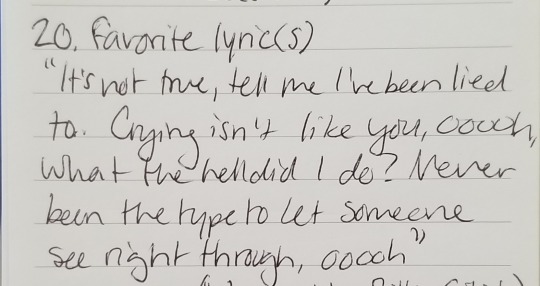 20. Favorite lyric(s)
"It's not true, tell me I've been lied
to. Crying isn't like you, ooooh,
What the hell did I do? Never
been the type to let someone
see right through, ooooh"